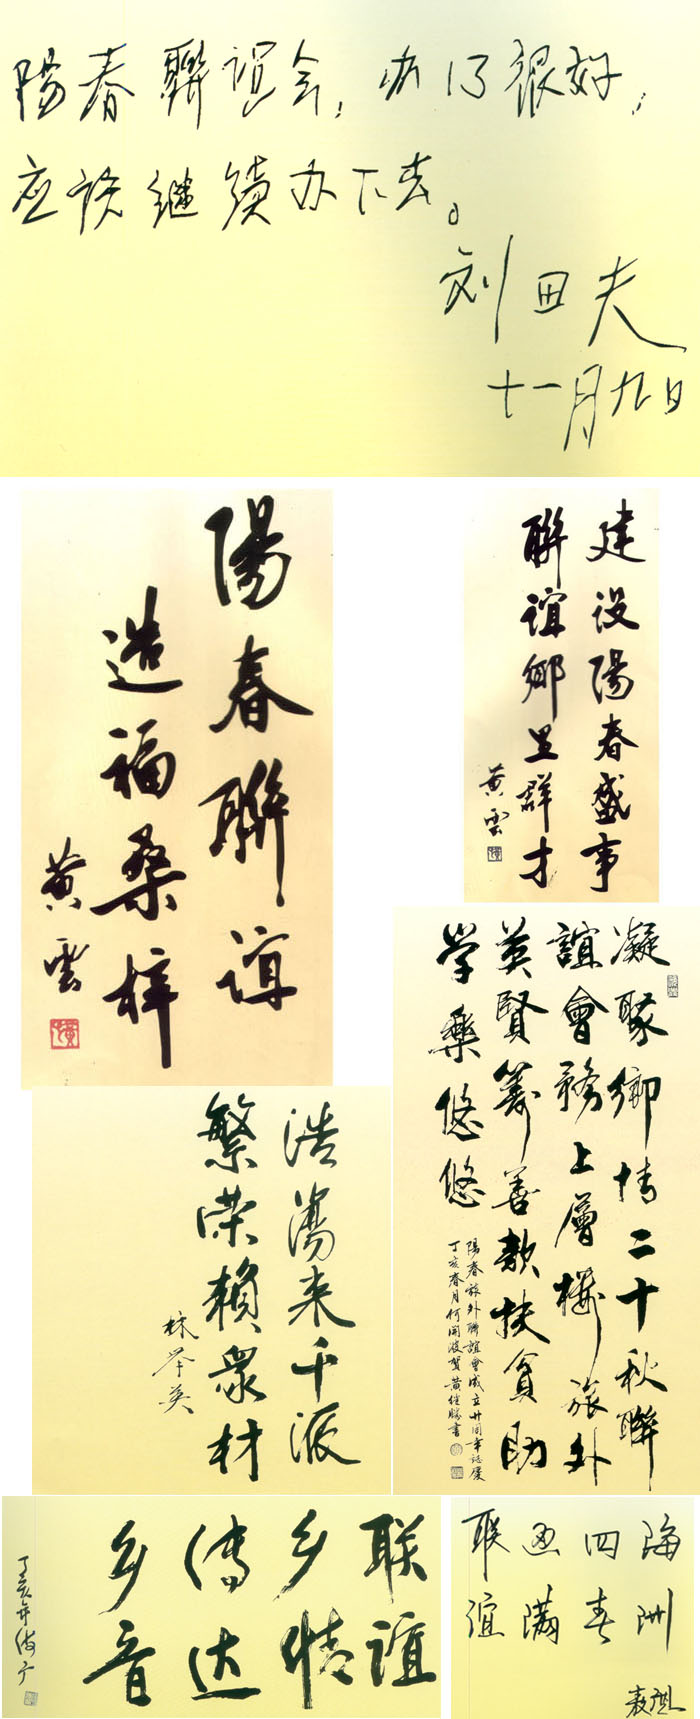 陽春联谊会，办得很好，
应该继续办下去。
刘田夫
十一月九日
陽春聯谊
造福桑梓
黄雲
建设陽春盛事
聯谊鄉里群才
黄雲
凝聚鄉情二十秋聯
誼會務上層樓旅外
英賢籌善款扶貧助
学樂悠悠
陽春旅外聯誼會成立廿周年誌慶
丁亥春月何開波賀黄继勝書
浩蕩来千派
繁荣賴眾材
林举英
联谊
乡情
传达
乡音
丁亥年
海洲
四春
恩满
联谊